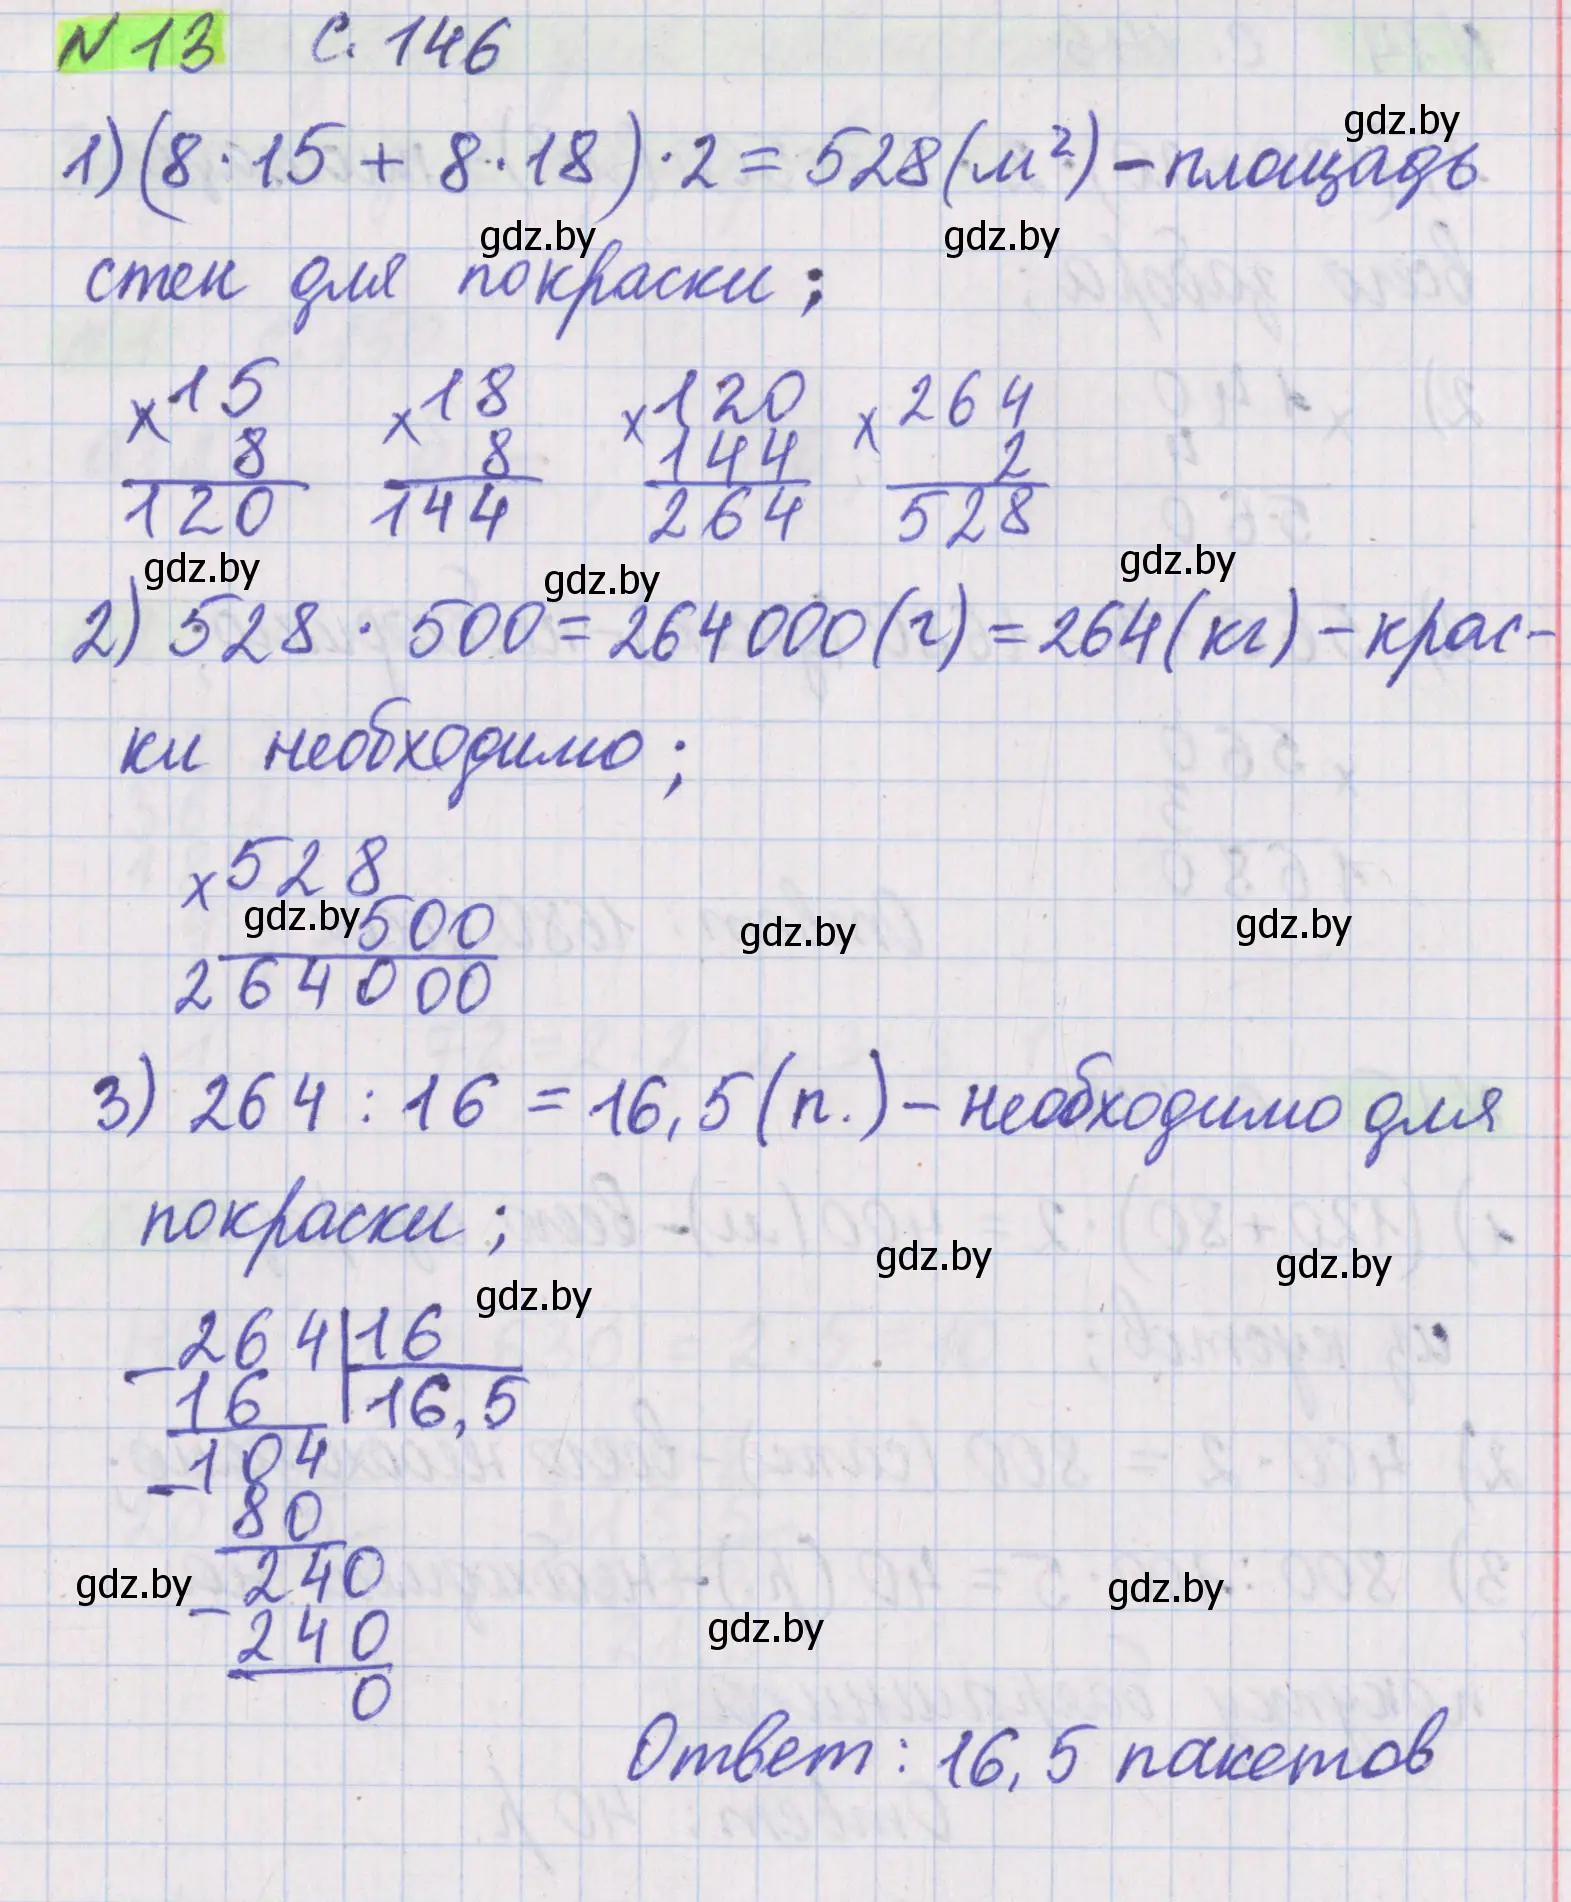 N 13 с. 146
gdz.by
1) (8 · 15 + 8 · 18) · 2 = 528 (м²) – площадь
gdz.by gdz.by
стен для покраски;
× 15 × 18 × 120 × 264
8 8 144 2
120 144 264 528
gdz.by gdz.by gdz.by
2) 528 · 500 = 264000 (г) = 264 (кг) – крас-
ки необходимо;
× 528
gdz.by 500 gdz.by gdz.by
264000
3) 264 : 16 = 16,5 (п.) – необходимо для
покраски;
gdz.by gdz.by
gdz.by
– 264 | 16
16 | 16,5
– 104
80
– 240
gdz.by gdz.by
240 gdz.by
0
Ответ: 16,5 пакетов